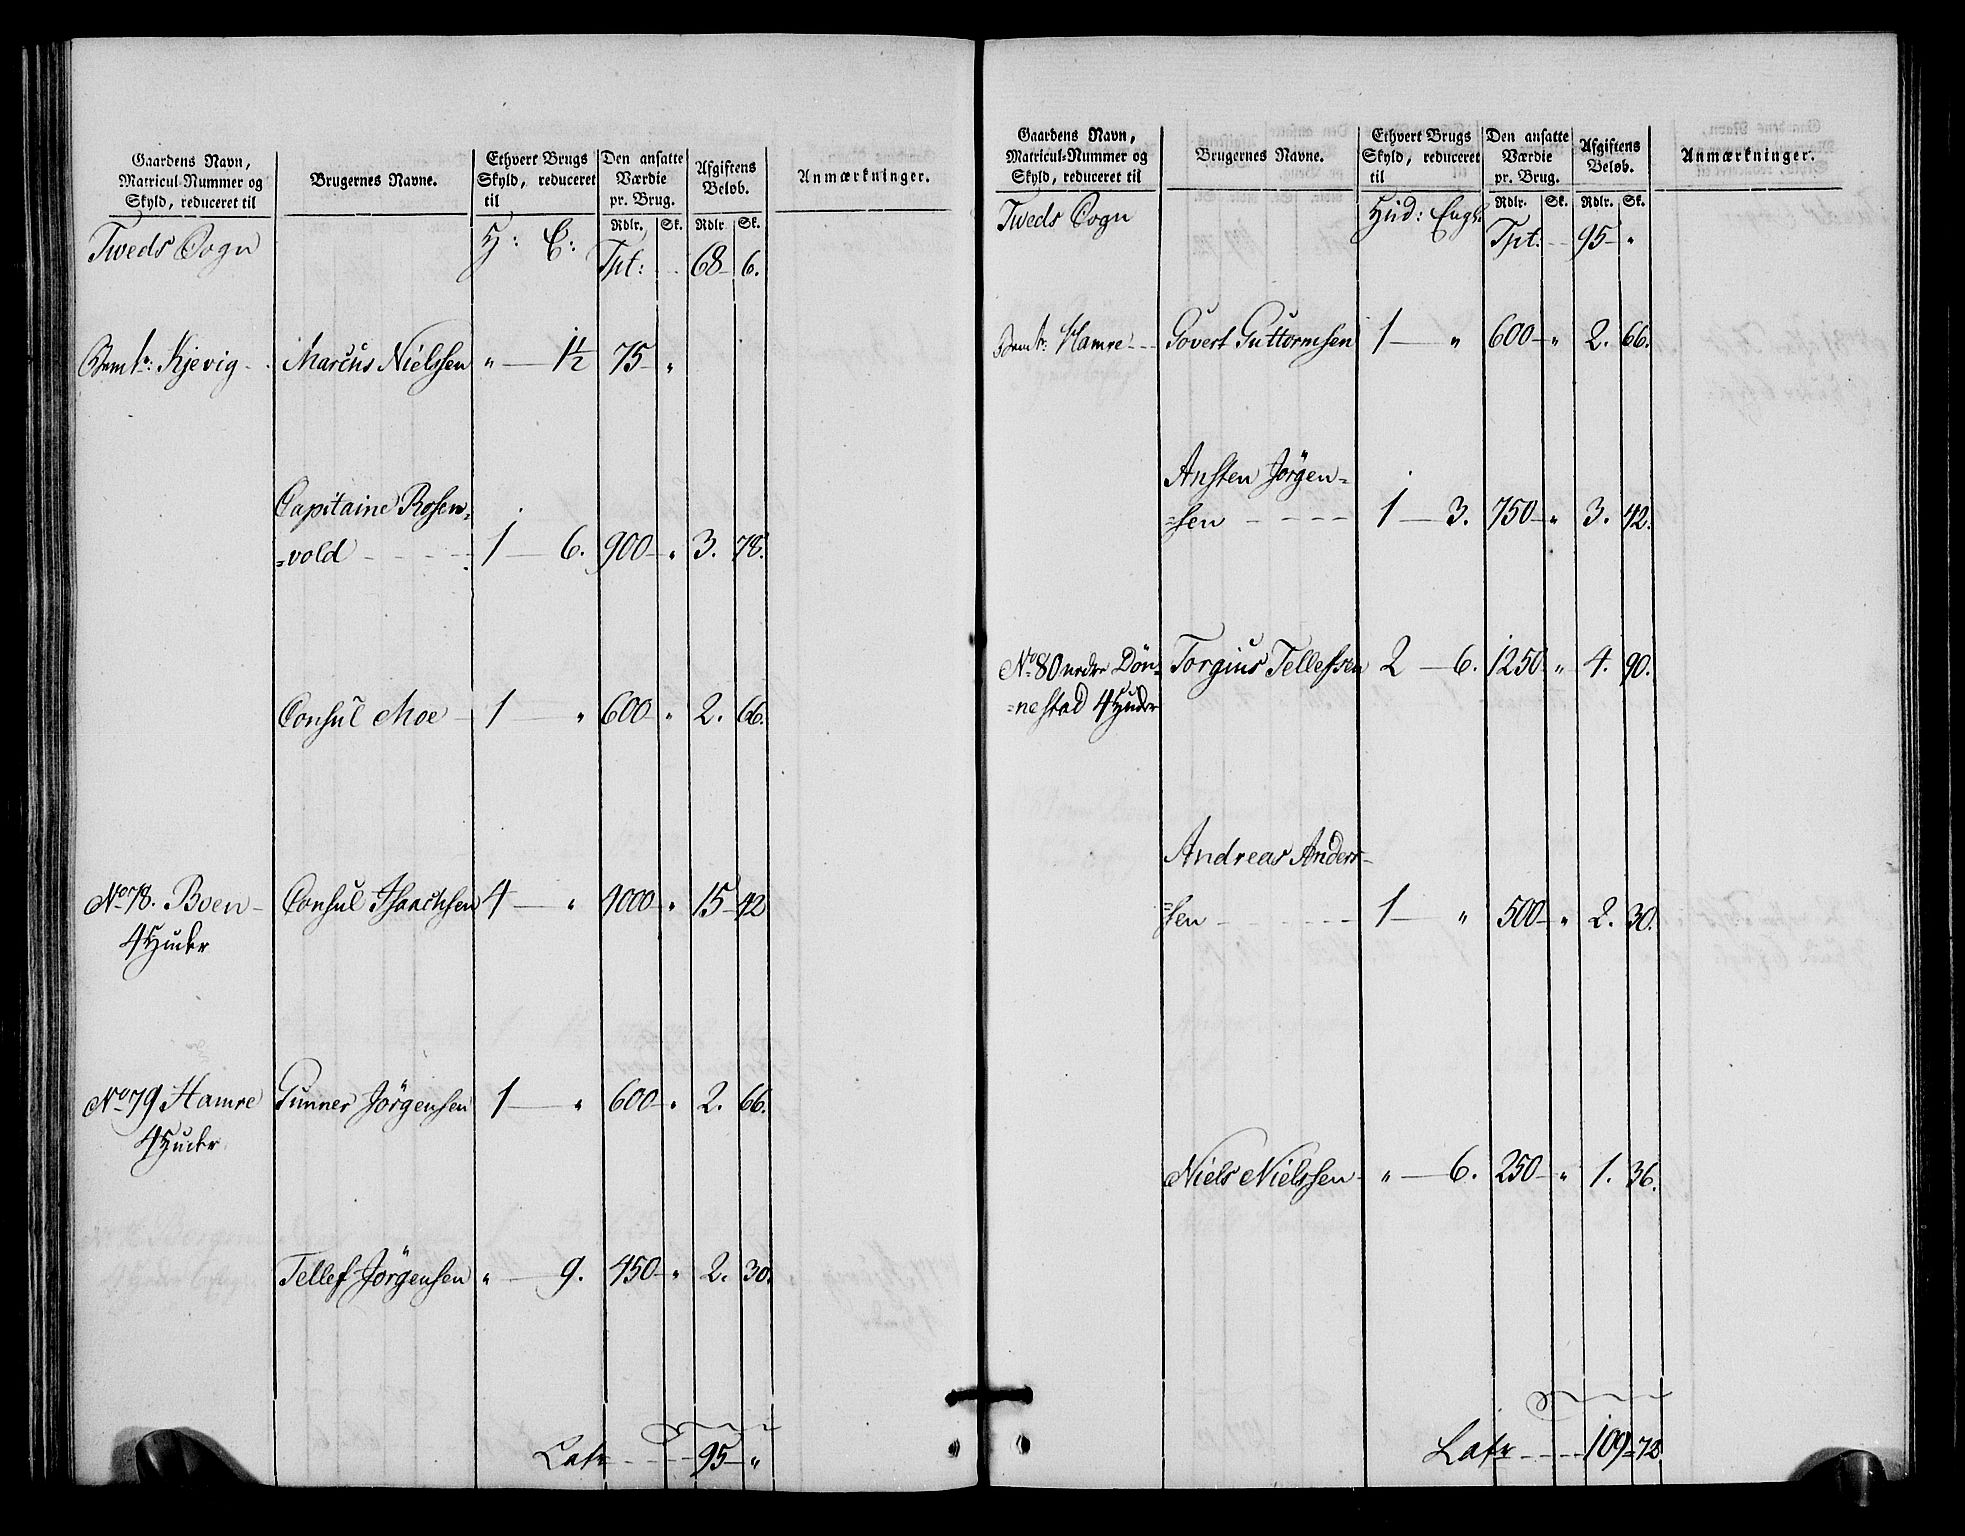 Gaardens Navn, Matricul-Nummer og Skyld, reduceret til | Brugernes Navne. | Ethvert Brugs Skyld, reduceret til | Den ansatte Værdie pr. Brug. | Afgiftens Beløb. | Anmærkninger.
Rdlr. | Sk. | Rdlr | Sk.
Tweds Sogn | H: E: | Tpt: | 68 6.
Kjevig | Marcus Nielssen | " 1½ | 75 "
Capitaine Rosen=
=vold | 1 6. | 900 " | 3. 78.
Consul Moe | 1 " | 600 " | 2. 66.
No 78. Boen | Consul Isaachsen | 4 " | 4000 " | 15 42
4 Huder
No 79 Hamre | Gunner Jörgensen | 1 " | 600 " | 2. 66.
4 Huder
Tellef Jörgensen | " 9. | 450 " | 2. 30.
Latr 95 "
Gaardens Navn, Matricul-Nummer og Skyld, reduceret til | Brugernes Navne. | Ethvert Brugs Skyld, reduceret til | Den ansatte Værdie pr. Brug. | Afgiftens Beløb. | Anmærkninger.
Rdlr. | Sk. | Rdlr. | Sk.
Tweds Sogn | Hud: Engl. | Tpt: | 95 "
Hamre | Govert Guttormsen | 1 " | 600 " | 2. 66.
Ansten Jörgen=
=sen | 1 3. | 750 " | 3. 42.
No 80 nedre Dön= | Torgius Tellefsen | 2 6. | 1250 " | 4. 90.
=nestad 4 Huder
Andreas Anders=
=sen | 1 " | 500 " | 2. 30.
Niels Nielssen | " 6. | 250 " | 1. 36.
Latr 109 72.